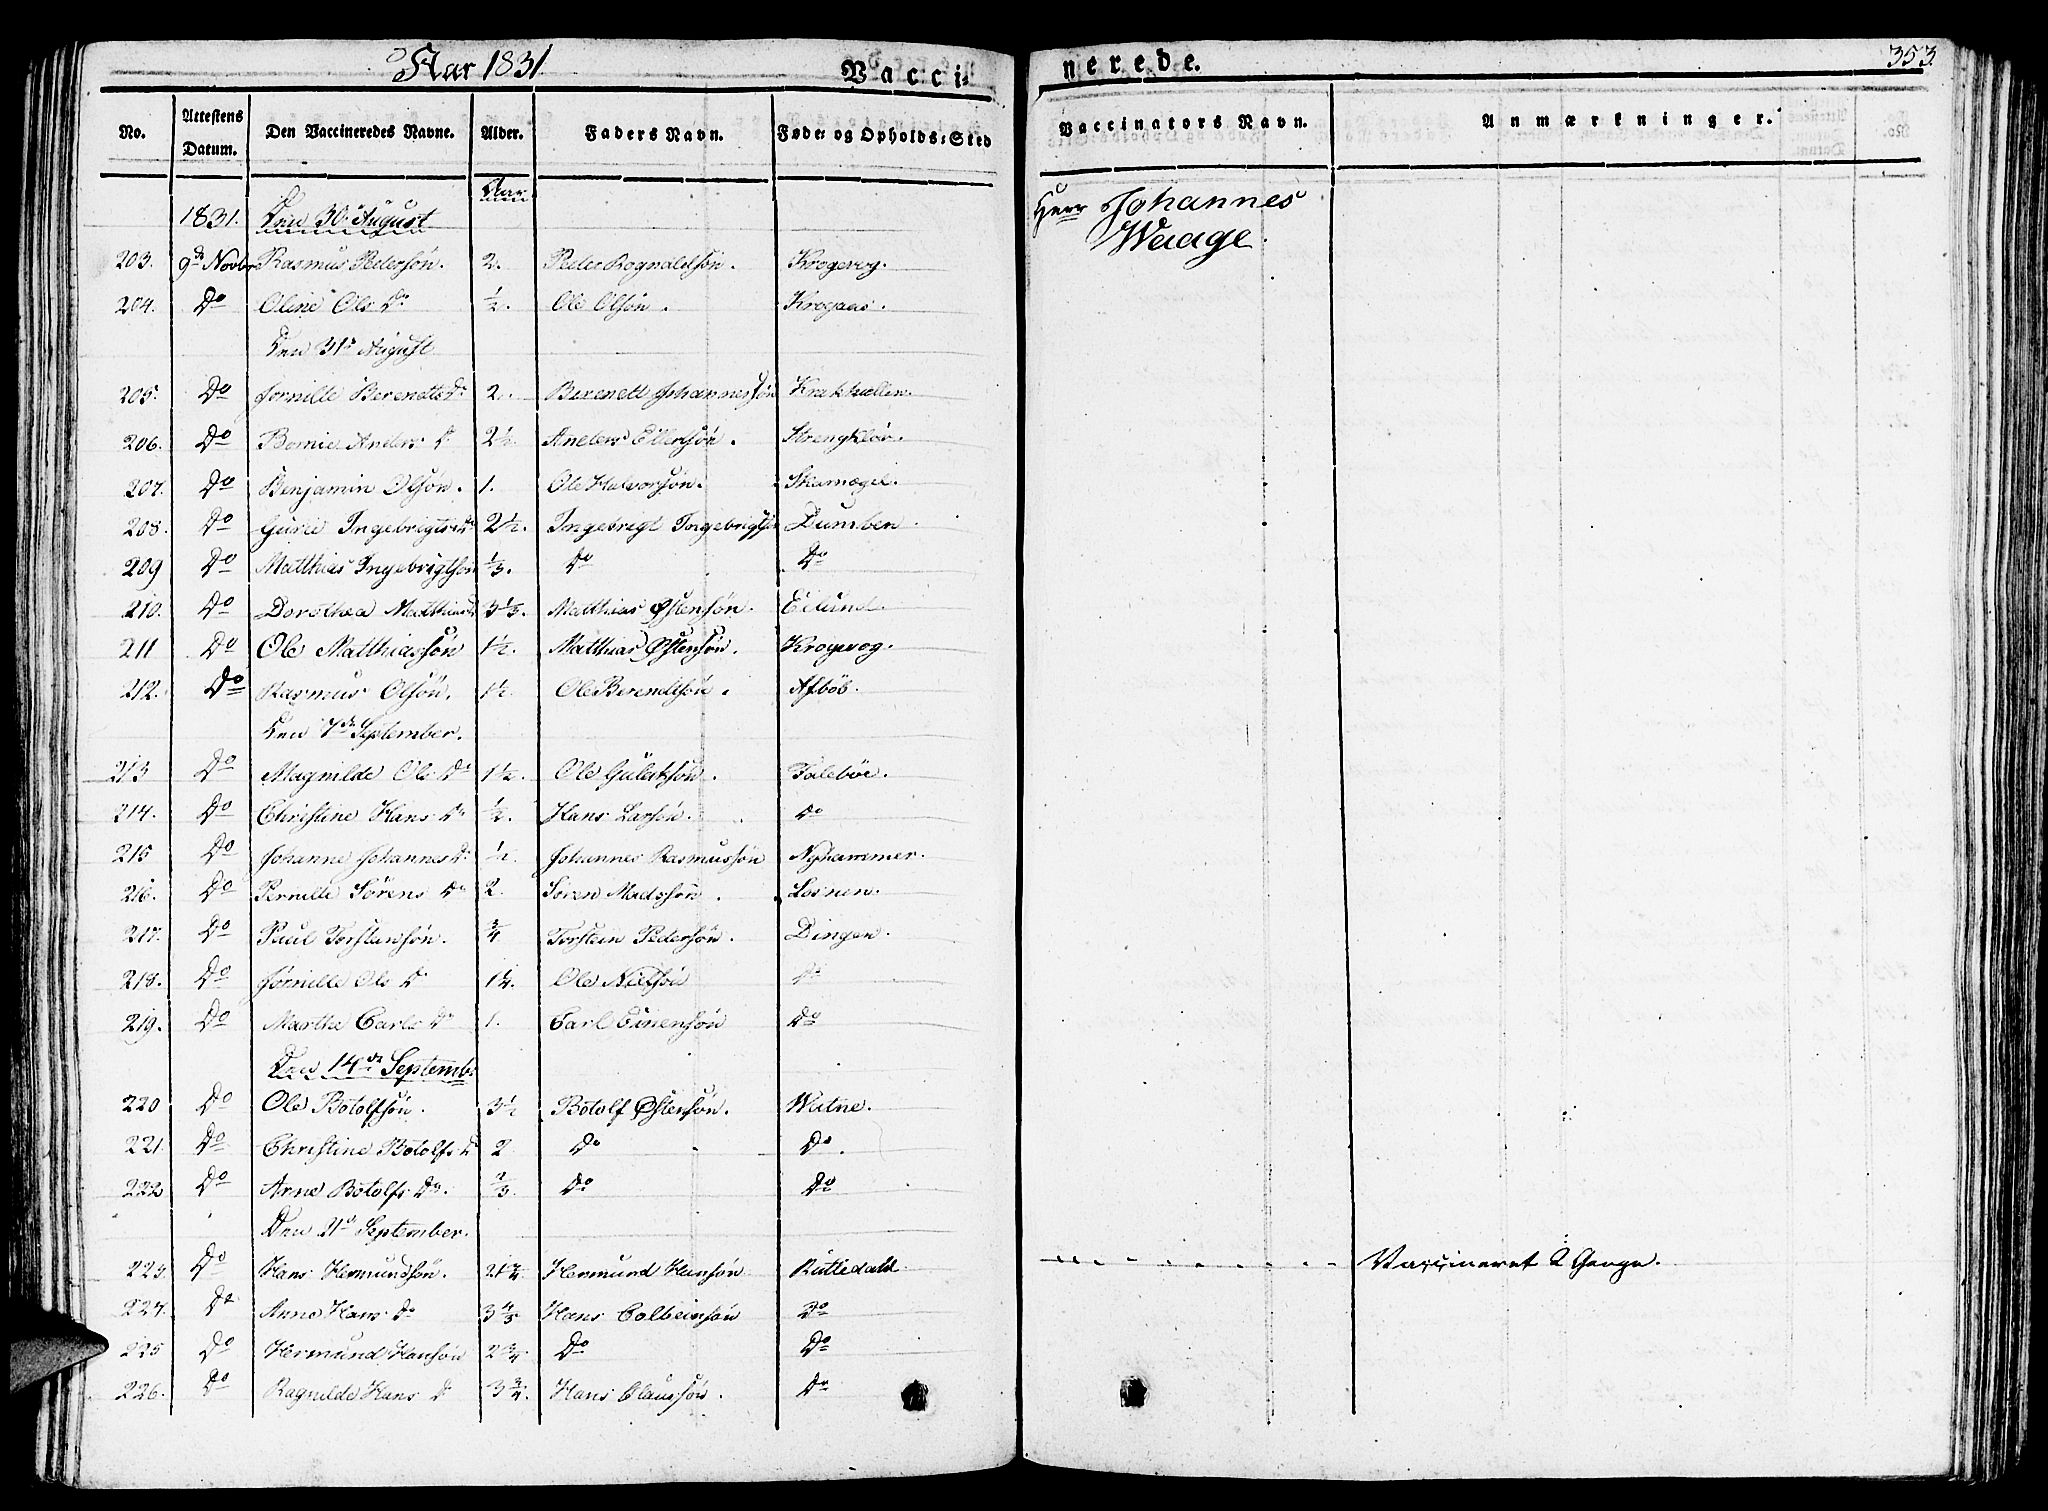 Aar 1831
Vacci-
nerede.
353.
No. Attestens Datum. Den Vaccineredes Navne. Alder. Faders Navn. Føde- og Opholds-Sted Vaccinators Navn. Anmærkninger.
Aar
1831. Den 30. August Herr Johannes
Waage.
203. 9de Novbr Rasmus Pedersøn. 2. Peder Rognaldsøn. Krogevog.
204. Do Oline Ols Dr ½. Ole Olsøn. Krogaas.
Den 31te August
205. Do Jørnilte Berendts Dr 2. Berenett Johannessøn Krakhællen.
206. Do Bomie Anders Dr 2½. Anders Ellertsøn.
207. Do Benjamin Olsøn. 1. Ole Halvorsøn. Skamogel.
208. Do Gurie Ingebrigts Dr 2½. Ingebrigt Ingebrigtsøn Dumben.
209 Do Matthias Ingebrigtsøn ⅓. Do Do
210. Do Dorothea Matthias Dr 3⅓. Matthias Østensøn. Eilund.
211 Do Ole Matthiassøn 1½. Matthias Østensøn. Krogevog.
212. Do Rasmus Olsøn. 1½. Ole Berendtsøn. Afböb.
Den 7de September.
213 Do Magnilde Ols Dr 1½. Ole Gulaksøn. Talebøe.
214. Do Christine Hans Dr ½. Hans Larsøn. Do
215 Do Johanne Johannes Dr ½. Johannes Rasmussøn Nyhammer.
216. Do Pernille Sørens Dr 2. Søren Madssøn. Losnen.
217. Do Paul Torstensøn. ¾ Torstein Pedersøn. Dingen.
218. Do Jørnille Ols Dr 1¼. Ole Nielsøn Do
219. Do Marthe Carls Dr 1. Carl Einensøn Do
Den 14de Septemb.
220 Do Ole Botolfsøn. 3½ Botolf Østensøn. Watne.
221. Do Christine Botolfs Dr 2 Do Do.
222 Do Arne Botolfs Dr. ⅔. Do Do
Den 21de September.
223. Do Hans Hermundsøn. 21¾. Hermund Hansøn Ruttedahl. Vaccineret 2 Gange.
224. Do Anne Hans Dr 3⅘ Hans Colbeinsøn Do
225 Do Hermund Hansøn 2¾. Do Do
226. Do Ragnilde Hans Dr 3¾. Hans Claussøn. Do